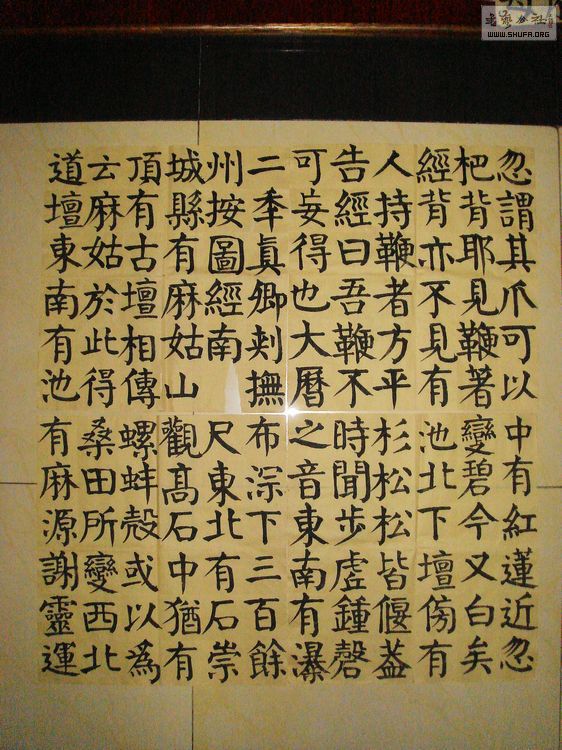 忽謂其爪可以
杷背耶見鞭著
經背亦不見有
人持鞭者方平
告經曰吾鞭不
可妄得也大曆
二秊真卿刾撫
州按圖經南
城縣有麻姑山
頂有古壇相傳
云麻姑於此得
道壇東南有池
中有紅蓮近忽
變碧今又白矣
池北下壇傍有
杉松松皆偃葢
時聞步虛鍾磬
之音東南有瀑
布深下三百餘
尺東北有石崇
觀高石中猶有
螺蚌殼或以為
桑田所變西北
有麻源謝靈運
WWW.SHUFA.ORG